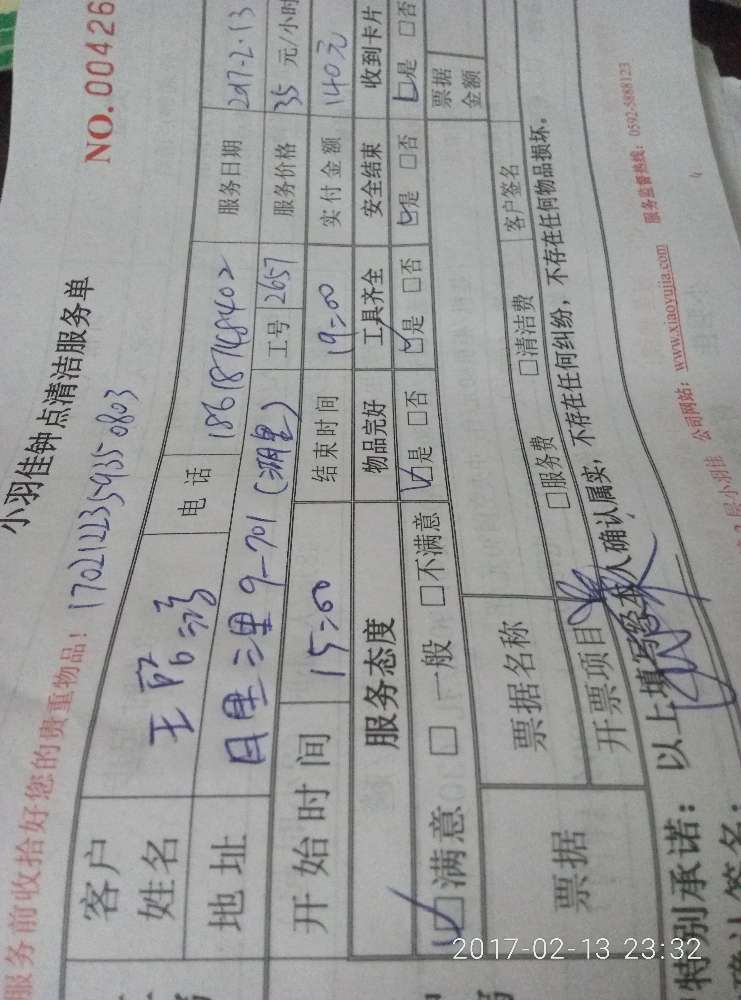 小羽佳钟点清洁服务单
NO.00426
服务前收拾好您的贵重物品! 1702122359350803
客户姓名 王 电话 18618748402 服务日期 2017-2-13
地址 9-701(湖里) 工号 2657 服务价格 35 元/小时
开始时间 15:00 结束时间 19:00 实付金额 140元
服务态度 物品完好 工具齐全 安全结束 收到卡片
☑满意 □一般 □不满意 ☑是 □否 ☑是 □否 ☑是 □否 ☑是 □否
票据 票据名称 票据金额
开票项目 □服务费 □清洁费 客户签名
特别承诺: 以上填写经本人确认属实,不存在任何纠纷,不存在任何物品损坏。
确认签名:
公司网站: www.xiaoyujia.com 服务监督热线: 0592-5888123
2017-02-13 23:32